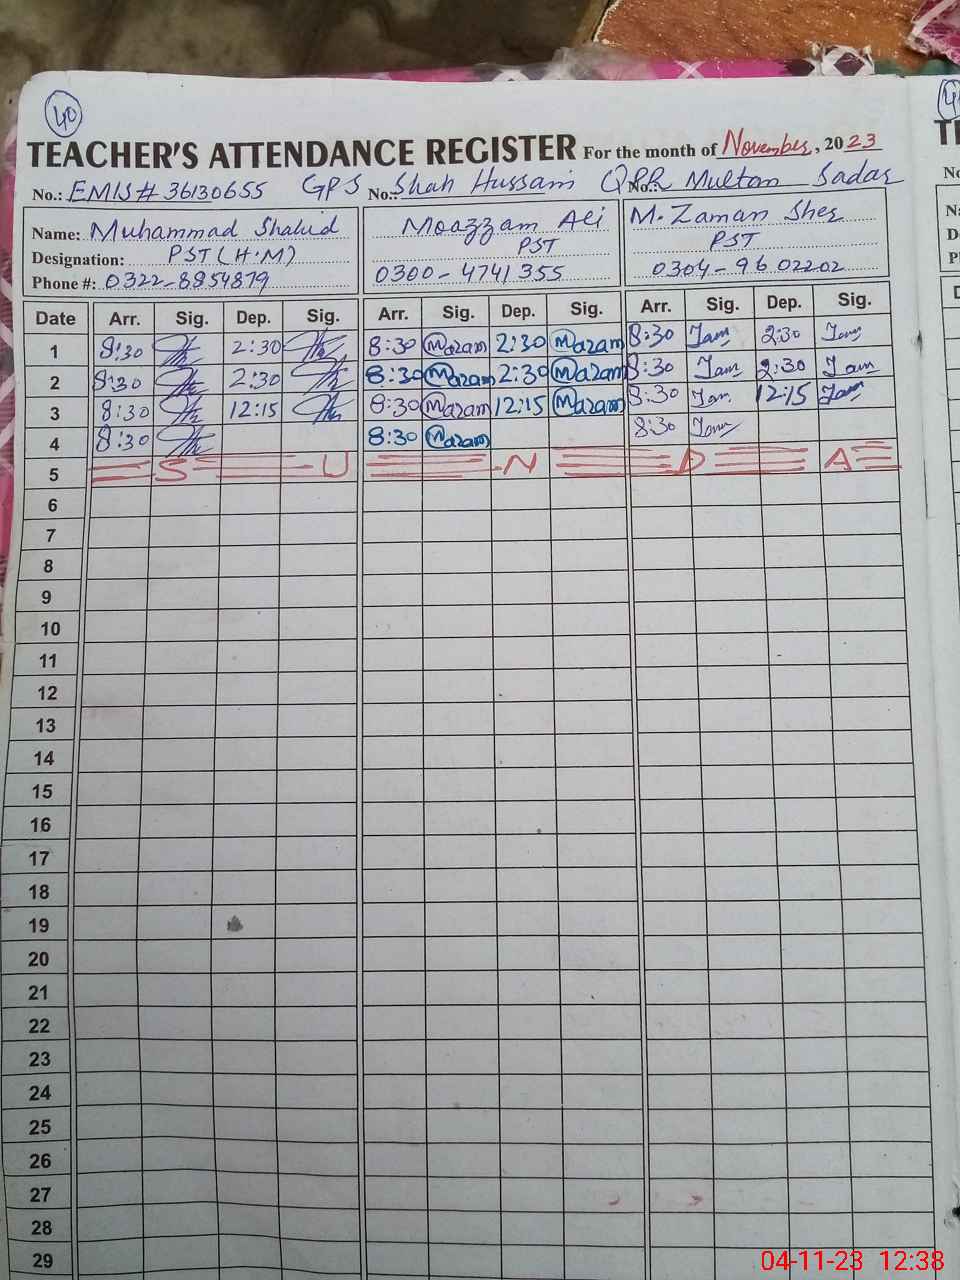 40
TEACHER'S ATTENDANCE REGISTER For the month of November, 2023
No.: EMIS# 36130655 GPS No.: Shah Hussain QPR No.: Multan Sadar
Name: Muhammad Shahid Moazzam Ali M. Zaman Sher
Designation: PST (H.M) PST PST
Phone #: 0322-8854879 0300-4741355 0304-9602202
Date Arr. Sig. Dep. Sig. Arr. Sig. Dep. Sig. Arr. Sig. Dep. Sig.
1 8:30 2:30 8:30 Mazam 2:30 Mazam 8:30 2:30
2 8:30 2:30 8:30 Mazam 2:30 Mazam 8:30 2:30
3 8:30 12:15 8:30 Mazam 12:15 Mazam 8:30 12:15
4 8:30 8:30 Mazam 8:30
5 S U N D A
6
7
8
9
10
11
12
13
14
15
16
17
18
19
20
21
22
23
24
25
26
27
28
29
04-11-23 12:38